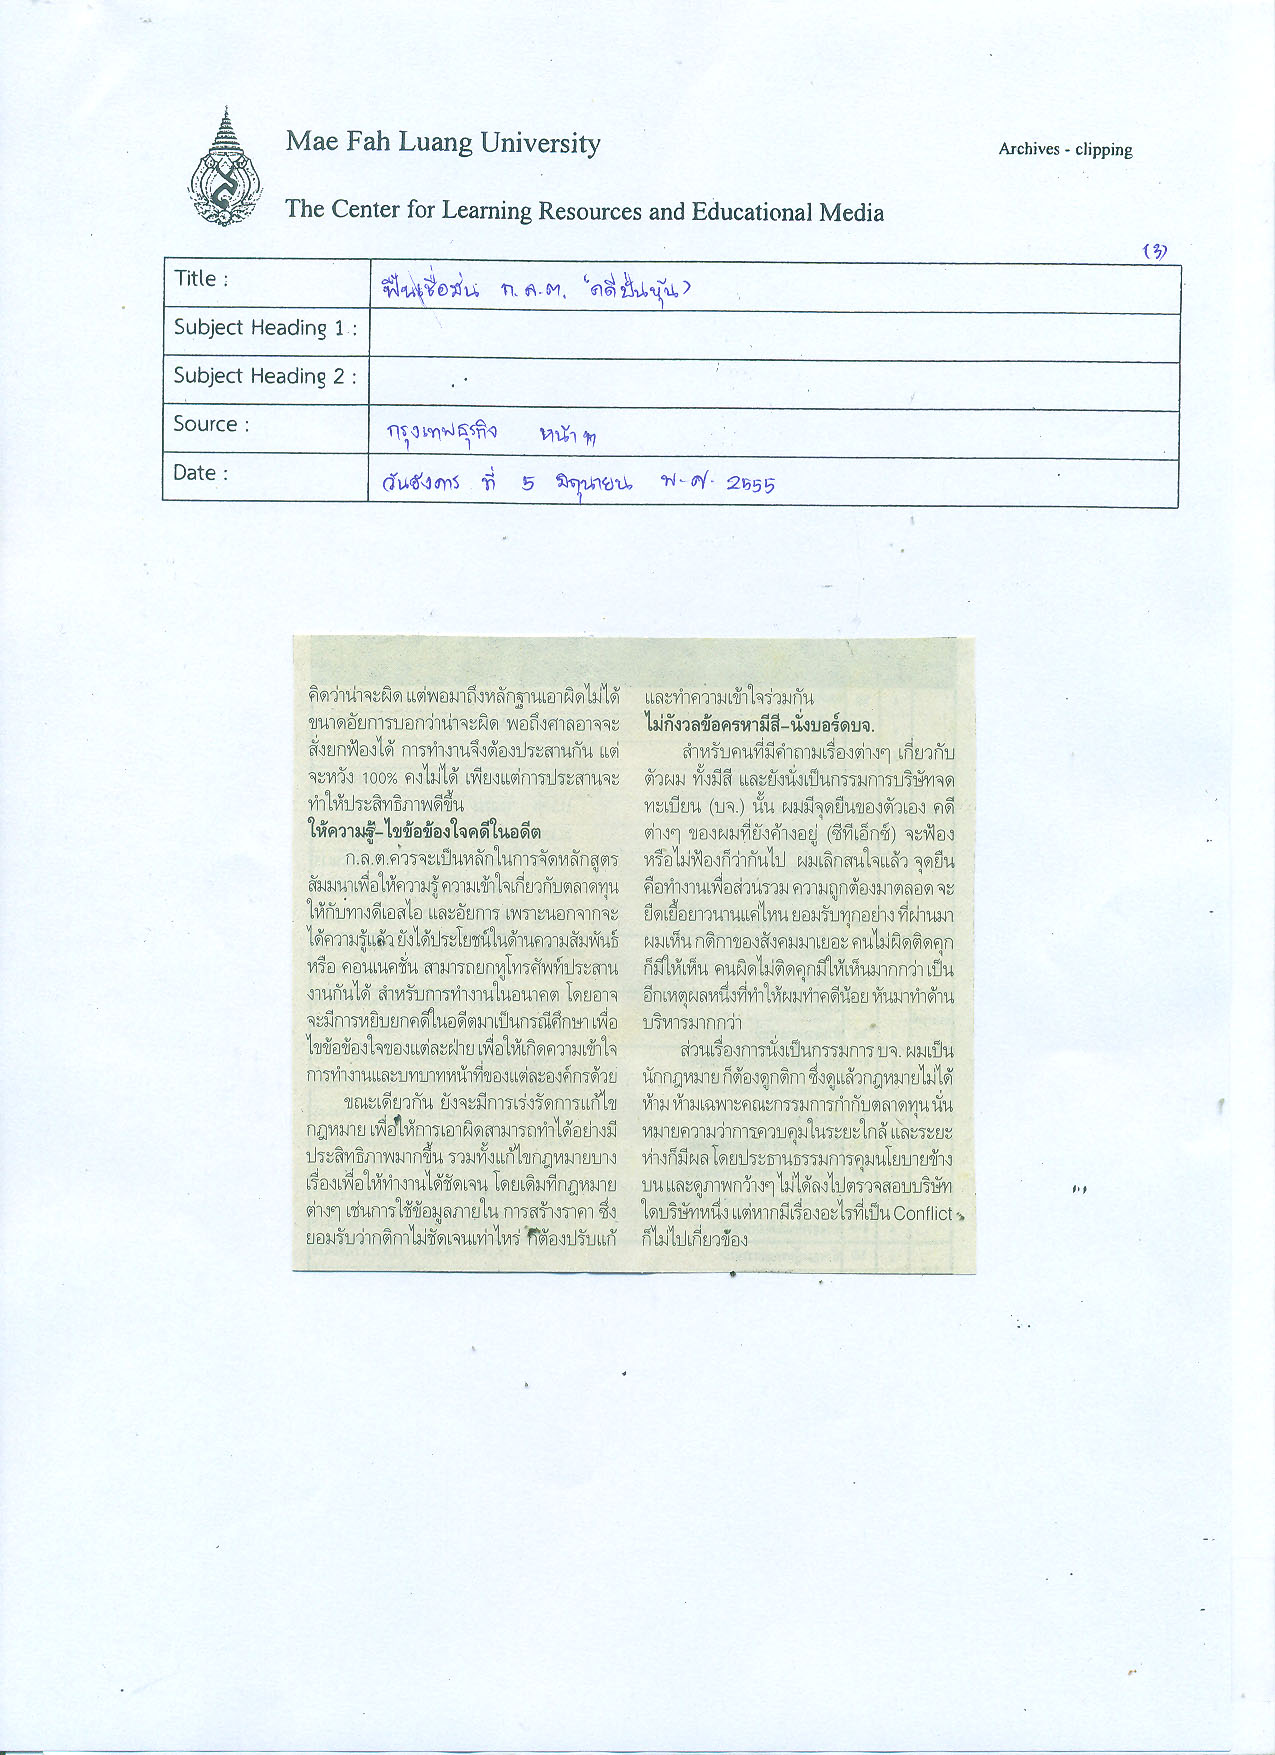 Mae Fah Luang University
Archives - clipping
The Center for Learning Resources and Educational Media
(3)
Title : ฟื้นเชื่อมั่น ก.ล.ต. 'คดีปั่นหุ้น'
Subject Heading 1 :
Subject Heading 2 :
Source : กรุงเทพธุรกิจ หน้า ๓
Date : วันอังคาร ที่ 5 มิถุนายน พ.ศ. 2555
คิดว่าน่าจะผิด แต่พอมาถึงหลักฐานเอาผิดไม่ได้
ขนาดอัยการบอกว่าน่าจะผิด พอถึงศาลอาจจะ
สั่งยกฟ้องได้ การทำงานจึงต้องประสานกัน แต่
จะหวัง 100% คงไม่ได้ เพียงแต่การประสานจะ
ทำให้ประสิทธิภาพดีขึ้น
ให้ความรู้-ไขข้อข้องใจคดีในอดีต
ก.ล.ต.ควรจะเป็นหลักในการจัดหลักสูตร
สัมมนาเพื่อให้ความรู้ ความเข้าใจเกี่ยวกับตลาดทุน
ให้กับทางดีเอสไอ และอัยการ เพราะนอกจากจะ
ได้ความรู้แล้ว ยังได้ประโยชน์ในด้านความสัมพันธ์
หรือ คอนเนคชั่น สามารถยกหูโทรศัพท์ประสาน
งานกันได้ สำหรับการทำงานในอนาคต โดยอาจ
จะมีการหยิบยกคดีในอดีตมาเป็นกรณีศึกษา เพื่อ
ไขข้อข้องใจของแต่ละฝ่าย เพื่อให้เกิดความเข้าใจ
การทำงานและบทบาทหน้าที่ของแต่ละองค์กรด้วย
ขณะเดียวกัน ยังจะมีการเร่งรัดการแก้ไข
กฎหมาย เพื่อให้การเอาผิดสามารถทำได้อย่างมี
ประสิทธิภาพมากขึ้น รวมทั้งแก้ไขกฎหมายบาง
เรื่องเพื่อให้ทำงานได้ชัดเจน โดยเดิมทีกฎหมาย
ต่างๆ เช่นการใช้ข้อมูลภายใน การสร้างราคา ซึ่ง
ยอมรับว่ากติกาไม่ชัดเจนเท่าไหร่ ก็ต้องปรับแก้
และทำความเข้าใจร่วมกัน
ไม่กังวลข้อครหามีสี-นั่งบอร์ดบจ.
สำหรับคนที่มีคำถามเรื่องต่างๆ เกี่ยวกับ
ตัวผม ทั้งมีสี และยังนั่งเป็นกรรมการบริษัทจด
ทะเบียน (บจ.) นั้น ผมมีจุดยืนของตัวเอง คดี
ต่างๆ ของผมที่ยังค้างอยู่ (ซีทีเอ็กซ์) จะฟ้อง
หรือไม่ฟ้องก็ว่ากันไป ผมเลิกสนใจแล้ว จุดยืน
คือทำงานเพื่อส่วนรวม ความถูกต้องมาตลอด จะ
ยืดเยื้อยาวนานแค่ไหน ยอมรับทุกอย่าง ที่ผ่านมา
ผมเห็น กติกาของสังคมมาเยอะ คนไม่ผิดติดคุก
ก็มีให้เห็น คนผิดไม่ติดคุกมีให้เห็นมากกว่า เป็น
อีกเหตุผลหนึ่งที่ทำให้ผมทำคดีน้อย หันมาทำด้าน
บริหารมากกว่า
ส่วนเรื่องการนั่งเป็นกรรมการ บจ. ผมเป็น
นักกฎหมาย ก็ต้องดูกติกา ซึ่งดูแล้วกฎหมายไม่ได้
ห้าม ห้ามเฉพาะคณะกรรมการกำกับตลาดทุน นั่น
หมายความว่าการควบคุมในระยะใกล้ และระยะ
ห่างก็มีผล โดยประธานธรรมการคุมนโยบายข้าง
บน และดูภาพกว้างๆ ไม่ได้ลงไปตรวจสอบบริษัท
ใดบริษัทหนึ่ง แต่หากมีเรื่องอะไรที่เป็น Conflict
ก็ไม่ไปเกี่ยวข้อง